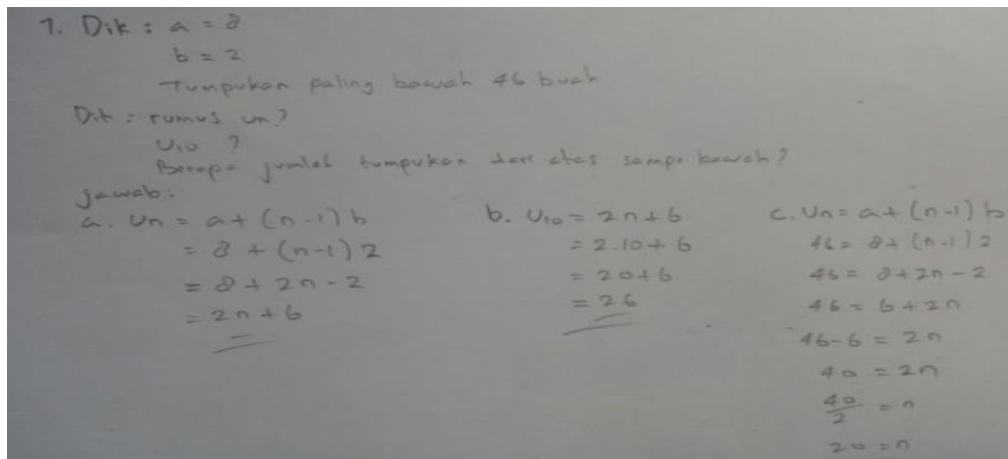 1. Dik : a = 8
b = 2
Tumpukan paling bawah 46 buah
Dit : rumus un?
U10 ?
Berapa jumlah tumpukan dari atas sampe bawah?
Jawab:
a. Un = a + (n-1) b
= 8 + (n-1) 2
= 8 + 2n - 2
= 2n + 6
b. U10 = 2n + 6
= 2.10 + 6
= 20 + 6
= 26
c. Un = a + (n-1) b
46 = 8 + (n-1) 2
46 = 8 + 2n - 2
46 = 6 + 2n
46 - 6 = 2n
40 = 2n
40/2 = n
20 = n